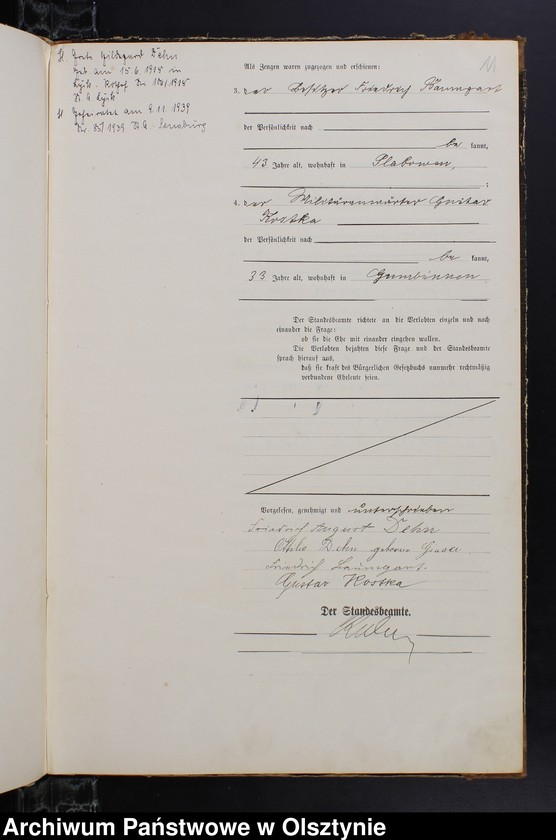 Dehn
geb. am 15.6.1915 in
Lyck
St. A. Lyck
Geheiratet am 9.11.1939
Nr. 85/1939 St. A. Sensburg
11
Als Zeugen waren zugezogen und erschienen:
3. der Besitzer Friedrich Baumgart
der Persönlichkeit nach
be kannt,
43 Jahre alt, wohnhaft in
4. der Militäranwärter Gustav
Kostka
der Persönlichkeit nach
be kannt,
33 Jahre alt, wohnhaft in Gumbinnen
Der Standesbeamte richtete an die Verlobten einzeln und nach
einander die Frage:
ob sie die Ehe mit einander eingehen wollen.
Die Verlobten bejahten diese Frage und der Standesbeamte
sprach hierauf aus,
daß sie kraft des Bürgerlichen Gesetzbuchs nunmehr rechtmäßig
verbundene Eheleute seien.
Vorgelesen, genehmigt und unterschrieben
Friedrich August Dehn
Dehn geborene
Friedrich Baumgart.
Gustav Kostka
Der Standesbeamte.
Archiwum Państwowe w Olsztynie